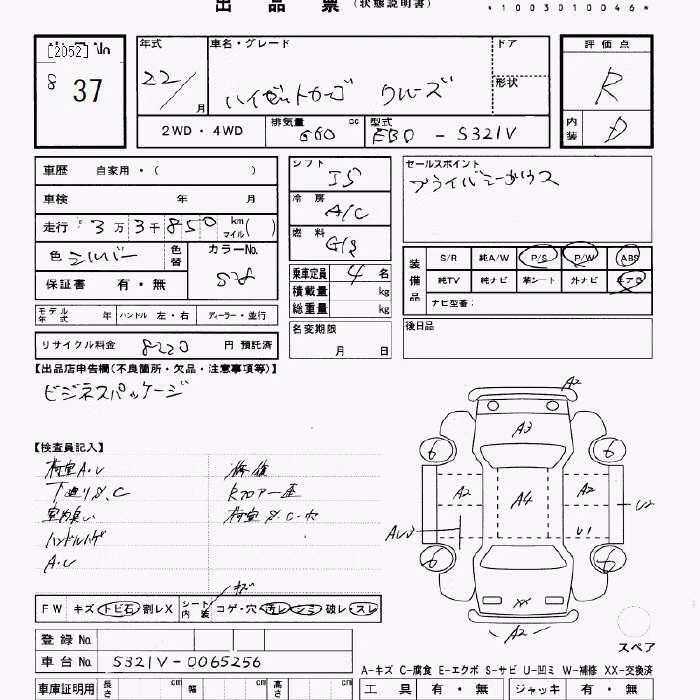 出 品 票 (状態説明書) *1003010046*
[2052]
8 37
年式 22/ 月
車名・グレード ハイゼットカーゴ クルーズ
ドア
形状
2WD・4WD 排気量 660 cc 型式 EBD - S321V
評価点 R
内装 D
車歴 自家用・( )
車検 年 月
走行 3万3千850 km マイル( )
色 シルバー 色替 カラーNo. S28
保証書 有・無
モデル年式 年 ハンドル 左・右 ディーラー・並行
リサイクル料金 8220 円 預託済
シフト
冷房 A/C
燃料
乗車定員 4 名
積載量 kg
総重量 kg
名変期限 月 日
セールスポイント
プライバシーガラス
装備品 S/R 純A/W P/S P/W ABS
純TV 純ナビ 革シート 外ナビ エアB
ナビ型番:
後日品
【出品店申告欄(不良箇所・欠品・注意事項等)】
ビジネスパッケージ
【検査員記入】
荷室A・U 修復
下廻りS、C
室内臭い 荷室S、C・穴
ハンドルハゲ
A・U
FW キズ トビ石 割レX シート内装 コゲ・穴 汚レ シミ 破レ・スレ
キズ
登録No.
車台No. S321V-0065256
車庫証明用 長さ cm 幅 cm 高さ cm
A2
A3
6 6
A2 A4 A2 U2
AU3 U1
6 6
XX
A2
スペア
A-キズ C-腐食 E-エクボ S-サビ U-凹ミ W-補修 XX-交換済
工具 有・無 ジャッキ 有・無